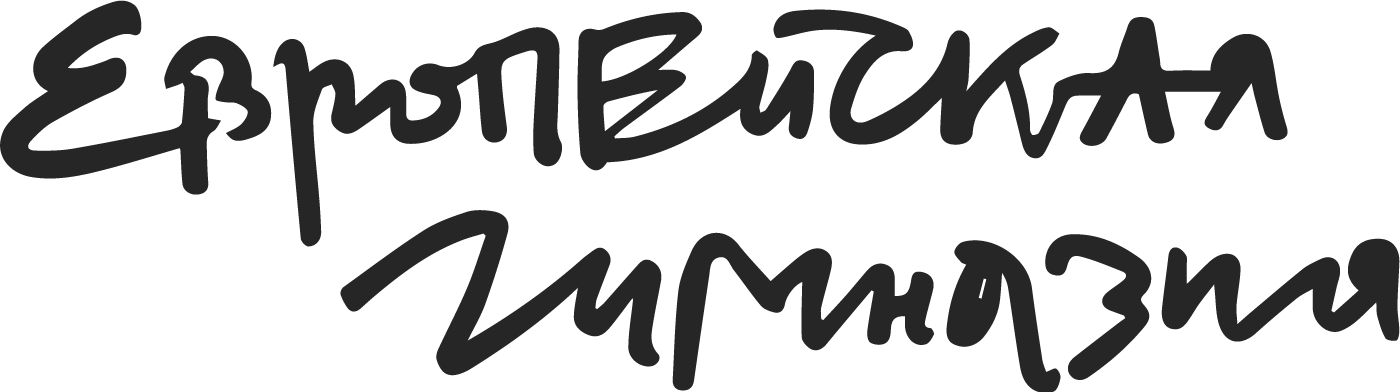 Европейская
гимназия